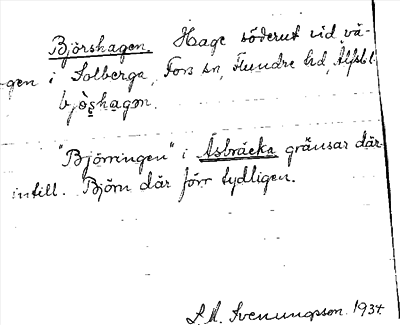 Björshagen. Hage söderut vid vä-
gen i Solberga, Fors sn, Flundre hd, Älfsbl.
bjö̀s̥hagen.
"Björningen" i Åsbräcka gränsar där-
intill. Björn där förr tydligen.
S. A. Svenungsson. 1934